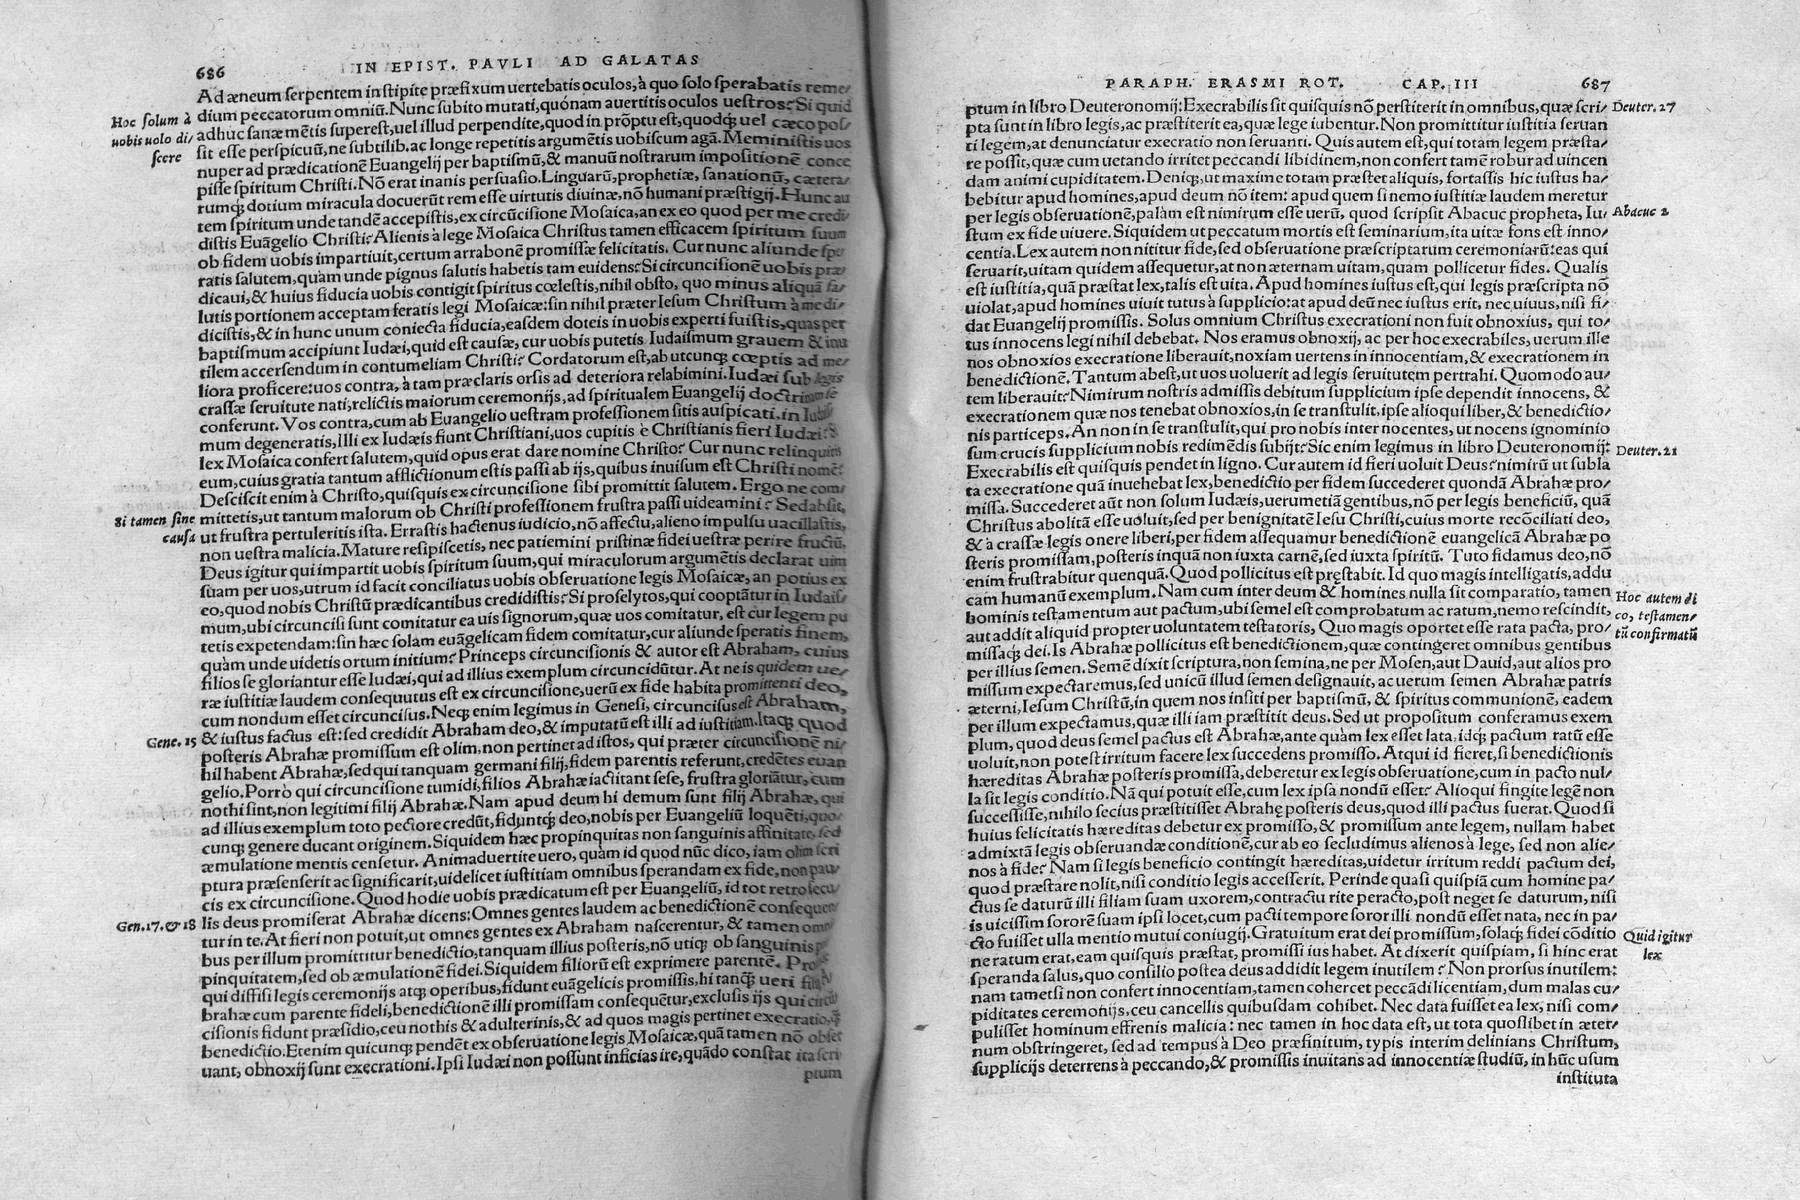 686 IN EPIST. PAVLI AD GALATAS
Ad æneum serpentem in stipite præfixum uertebatis oculos, à quo solo sperabatis reme⸗
dium peccatorum omniũ. Nunc subito mutati, quónam auertitis oculos uestros? Si quid
Hoc solum à
uobis uolo di⸗
scere
adhuc sanæ mẽtis superest, uel illud perpendite, quod in prõptu est, quodq́; uel cæco pos⸗
sit esse perspicuũ, ne subtilib. ac longe repetitis argumẽtis uobiscum agã. Meministis uos
nuper ad prædicationẽ Euangelij per baptismũ, & manuũ nostrarum impositionẽ conce
pisse spiritum Christi. Nõ erat inanis persuasio. Linguarũ, prophetiæ, sanationũ, cætera⸗
rumq́; dotium miracula docuerũt rem esse uirtutis diuinæ, nõ humani præstigij. Hunc au
tem spiritum unde tandẽ accepistis, ex circũcisione Mosaica, an ex eo quod per me credi⸗
distis Euãgelio Christi? Alienis à lege Mosaica Christus tamen efficacem spiritum suum
ob fidem uobis impartiuit, certum arrabonẽ promissæ felicitatis. Cur nunc aliunde spe⸗
ratis salutem, quàm unde pignus salutis habetis tam euidens? Si circuncisionẽ uobis præ⸗
dicaui, & huius fiducia uobis contigit spiritus cœlestis, nihil obsto, quo minus aliquã sa⸗
lutis portionem acceptam feratis legi Mosaicæ: sin nihil præter Iesum Christum à me di⸗
dicistis, & in hunc unum coniecta fiducia, easdem doteis in uobis experti fuistis, quas per
baptismum accipiunt Iudæi, quid est causæ, cur uobis putetis Iudaismum grauem & inu
tilem accersendum in contumeliam Christi? Cordatorum est, ab utcunq́; cœptis ad me⸗
liora proficere: uos contra, à tam præclaris orsis ad deteriora relabimini. Iudæi sub legis
crassæ seruitute nati, relictis maiorum ceremonijs, ad spiritualem Euangelij doctrinam se
conferunt. Vos contra, cum ab Euangelio uestram professionem sitis auspicati, in Iudais
mum degeneratis, Illi ex Iudæis fiunt Christiani, uos cupitis è Christianis fieri Iudæi: Si
lex Mosaica confert salutem, quid opus erat dare nomine Christo? Cur nunc relinquitis
eum, cuius gratia tantum afflictionum estis passi ab ijs, quibus inuisum est Christi nomẽ?
Desciscit enim à Christo, quisquis ex circuncisione sibi promittit salutem. Ergo ne com⸗
Si tamen sine
causa
mittetis, ut tantum malorum ob Christi professionem frustra passi uideamini? Sed absit,
ut frustra pertuleritis ista. Errastis hactenus iudicio, nõ affectu, alieno impulsu uacillastis,
non uestra malicia. Mature resipiscetis, nec patiemini pristinæ fidei uestræ perire fructũ.
Deus igitur qui impartit uobis spiritum suum, qui miraculorum argumẽtis declarat uim
suam per uos, utrum id facit conciliatus uobis obseruatione legis Mosaicæ, an potius ex
eo, quod nobis Christũ prædicantibus credidistis? Si proselytos, qui cooptãtur in Iudais⸗
mum, ubi circuncisi sunt comitatur ea uis signorum, quæ uos comitatur, est cur legem pu
tetis expetendam: sin hæc solam euãgelicam fidem comitatur, cur aliunde speratis finem,
quàm unde uidetis ortum initium? Princeps circuncisionis & autor est Abraham, cuius
filios se gloriantur esse Iudæi, qui ad illius exemplum circuncidũtur. At ne is quidem ue⸗
ræ iustitiæ laudem consequutus est ex circuncisione, uerũ ex fide habita promittenti deo,
cum nondum esset circuncisus. Neq́; enim legimus in Genesi, circuncisus est Abraham,
Gene. 15
& iustus factus est: sed credidit Abraham deo, & imputatũ est illi ad iustitiam. Itaq́; quod
posteris Abrahæ promissum est olim, non pertinet ad istos, qui præter circuncisionẽ ni⸗
hil habent Abrahæ, sed qui tanquam germani filij, fidem parentis referunt, credẽtes euan
gelio. Porrò qui circuncisione tumidi, filios Abrahæ iactitant sese, frustra gloriãtur, cum
nothi sint, non legitimi filij Abrahæ. Nam apud deum hi demum sunt filij Abrahæ, qui
ad illius exemplum toto pectore credũt, fiduntq́; deo, nobis per Euangeliũ loquẽti, quo⸗
cunq́; genere ducant originem. Siquidem hæc propinquitas non sanguinis affinitate, sed
æmulatione mentis censetur. Animaduertite uero, quàm id quod nũc dico, iam olim scri
ptura præsenserit ac significarit, uidelicet iustitiam omnibus sperandam ex fide, non pau⸗
cis ex circuncisione. Quod hodie uobis prædicatum est per Euangeliũ, id tot retro secu⸗
Gen. 17. & 18
lis deus promiserat Abrahæ dicens: Omnes gentes laudem ac benedictionẽ consequen⸗
tur in te. At fieri non potuit, ut omnes gentes ex Abraham nascerentur, & tamen omni⸗
bus per illum promittitur benedictio, tanquam illius posteris, nõ utiq́; ob sanguinis
pinquitatem, sed ob æmulationẽ fidei. Siquidem filiorũ est exprimere parentẽ.
qui diffisi legis ceremonijs atq́; operibus, fidunt euãgelicis promissis, hi tanq̃ ueri filij
brahæ cum parente fideli, benedictionẽ illi promissam consequẽtur, exclusis ijs qui circũ
cisionis fidunt præsidio, ceu nothis & adulterinis, & ad quos magis pertinet execratio, q̃
benedictio. Etenim quicunq́; pendẽt ex obseruatione legis Mosaicæ, quã tamen nõ obser
uant, obnoxij sunt execrationi. Ipsi Iudæi non possunt inficias ire, quãdo constat ita scri
ptum
PARAPH. ERASMI ROT. CAP. III 687
ptum in libro Deuteronomij: Execrabilis sit quisquis nõ perstiterit in omnibus, quæ scri⸗
Deuter. 27
pta sunt in libro legis, ac præstiterit ea, quæ lege iubentur. Non promittitur iustitia seruan
ti legem, at denunciatur execratio non seruanti. Quis autem est, qui totam legem præsta⸗
re possit, quæ cum uetando irritet peccandi libidinem, non confert tamẽ robur ad uincen
dam animi cupiditatem. Deniq́;, ut maxime totam præstet aliquis, fortassis hic iustus ha⸗
bebitur apud homines, apud deum nõ item: apud quem si nemo iustitiæ laudem meretur
per legis obseruationẽ, palàm est nimirum esse uerũ, quod scripsit Abacuc propheta, Iu⸗
Abacuc 2
stum ex fide uiuere. Siquidem ut peccatum mortis est seminarium, ita uitæ fons est inno⸗
centia. Lex autem non nititur fide, sed obseruatione præscriptarum ceremoniarũ: eas qui
seruarit, uitam quidem assequetur, at non æternam uitam, quam pollicetur fides. Qualis
est iustitia, quã præstat lex, talis est uita. Apud homines iustus est, qui legis præscripta nõ
uiolat, apud homines uiuit tutus à supplicio: at apud deũ nec iustus erit, nec uiuus, nisi fi⸗
dat Euangelij promissis. Solus omnium Christus execrationi non fuit obnoxius, qui to⸗
tus innocens legi nihil debebat. Nos eramus obnoxij, ac per hoc execrabiles, uerum ille
nos obnoxios execratione liberauit, noxiam uertens in innocentiam, & execrationem in
benedictionẽ. Tantum abest, ut uos uoluerit ad legis seruitutem pertrahi. Quomodo au⸗
tem liberauit? Nimirum nostris admissis debitum supplicium ipse dependit innocens, &
execrationem quæ nos tenebat obnoxios, in se transtulit, ipse alioqui liber, & benedictio⸗
nis particeps. An non in se transtulit, qui pro nobis inter nocentes, ut nocens ignominio
sum crucis supplicium nobis redimẽdis subijt? Sic enim legimus in libro Deuteronomij:
Deuter. 21
Execrabilis est quisquis pendet in ligno. Cur autem id fieri uoluit Deus? nimirũ ut subla
ta execratione quã inuehebat lex, benedictio per fidem succederet quondã Abrahæ pro⸗
missa. Succederet aũt non solum Iudæis, uerumetiã gentibus, nõ per legis beneficiũ, quã
Christus abolitã esse uoluit, sed per benignitatẽ Iesu Christi, cuius morte recõciliati deo,
& à crassæ legis onere liberi, per fidem assequamur benedictionẽ euangelicã Abrahæ po
steris promissam, posteris inquã non iuxta carnẽ, sed iuxta spiritũ. Tuto fidamus deo, nõ
enim frustrabitur quenquã. Quod pollicitus est pręstabit. Id quo magis intelligatis, addu
cam humanũ exemplum. Nam cum inter deum & homines nulla sit comparatio, tamen
Hoc autem di
co, testamen⸗
tũ confirmatũ
hominis testamentum aut pactum, ubi semel est comprobatum ac ratum, nemo rescindit,
aut addit aliquid propter uoluntatem testatoris, Quo magis oportet esse rata pacta, pro⸗
missaq́; dei. Is Abrahæ pollicitus est benedictionem, quæ contingeret omnibus gentibus
per illius semen. Semẽ dixit scriptura, non semina, ne per Mosen, aut Dauid, aut alios pro
missum expectaremus, sed unicũ illud semen designauit, ac uerum semen Abrahæ patris
æterni, Iesum Christũ, in quem nos insiti per baptismũ, & spiritus communionẽ, eadem
per illum expectamus, quæ illi iam præstitit deus. Sed ut propositum conferamus exem
plum, quod deus semel pactus est Abrahæ, ante quàm lex esset lata, idq́; pactum ratũ esse
uoluit, non potest irritum facere lex succedens promisso. Atqui id fieret, si benedictionis
hæreditas Abrahæ posteris promissa, deberetur ex legis obseruatione, cum in pacto nul⸗
la sit legis conditio. Nã qui potuit esse, cum lex ipsa nondũ esset? Alioqui fingite legẽ non
successisse, nihilo secius præstitisset Abrahę posteris deus, quod illi pactus fuerat. Quod si
huius felicitatis hæreditas debetur ex promisso, & promissum ante legem, nullam habet
admixtã legis obseruandæ conditionẽ, cur ab eo secludimus alienos à lege, sed non alie⸗
nos à fide? Nam si legis beneficio contingit hæreditas, uidetur irritum reddi pactum dei,
quod præstare nolit, nisi conditio legis accesserit. Perinde quasi quispiã cum homine pa⸗
ctus se daturũ illi filiam suam uxorem, contractu rite peracto, post neget se daturum, nisi
is uicissim sororẽ suam ipsi locet, cum pacti tempore soror illi nondũ esset nata, nec in pa⸗
cto fuisset ulla mentio mutui coniugij. Gratuitum erat dei promissum, solaq́; fidei cõditio
Quid igitur
lex
ne ratum erat, eam quisquis præstat, promissi ius habet. At dixerit quispiam, si hinc erat
speranda salus, quo consilio postea deus addidit legem inutilem? Non prorsus inutilem:
nam tametsi non confert innocentiam, tamen cohercet peccãdi licentiam, dum malas cu⸗
piditates ceremonijs, ceu cancellis quibusdam cohibet. Nec data fuisset ea lex, nisi com⸗
pulisset hominum effrenis malicia: nec tamen in hoc data est, ut tota quoslibet in æter⸗
num obstringeret, sed ad tempus à Deo præfinitum, typis interim delinians Christum,
supplicijs deterrens à peccando, & promissis inuitans ad innocentiæ studiũ, in hũc usum
instituta